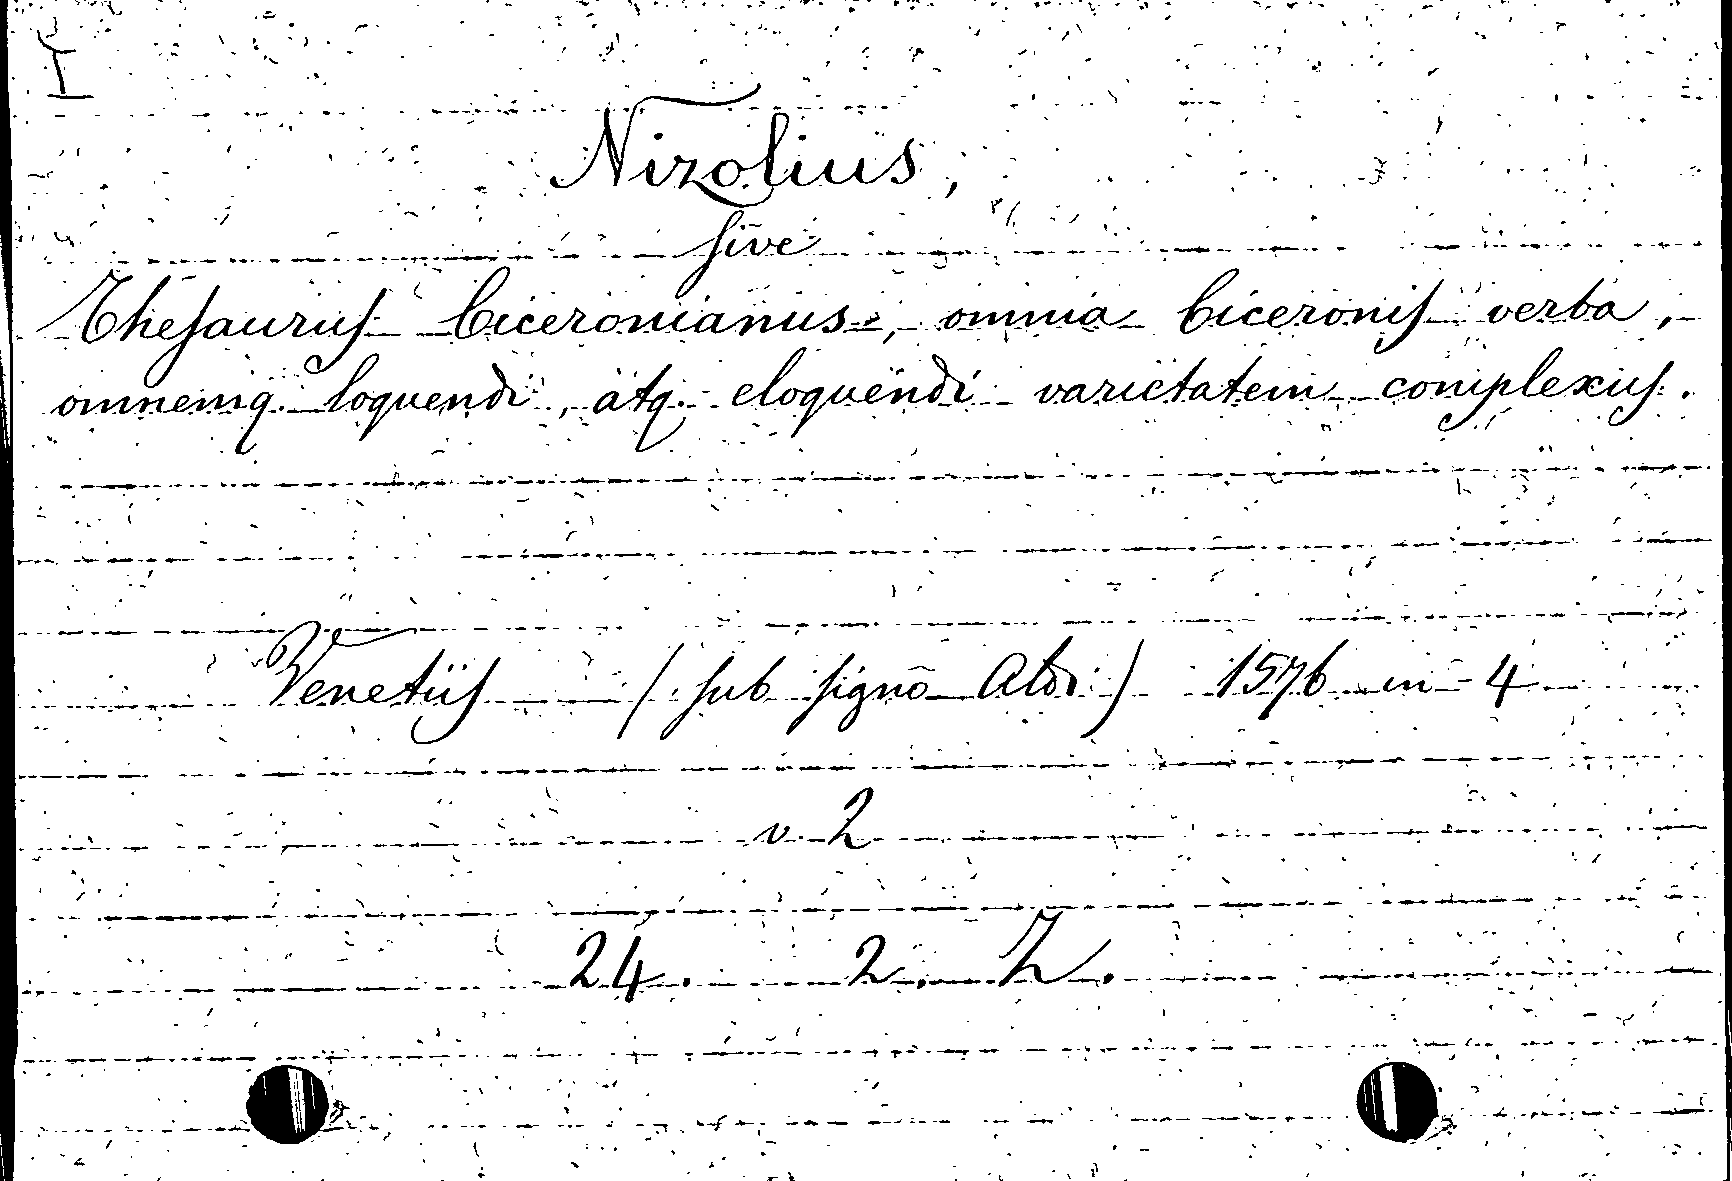 I
Nizolius,
sive
Thesaurus Ciceronianus, omnia Ciceronis verba,
omnemq. loquendi, atq. eloquendi varietatem complexus.
Venetiis (sub signo Aldi) 1576 in 4
v. 2
24. 2. Z.